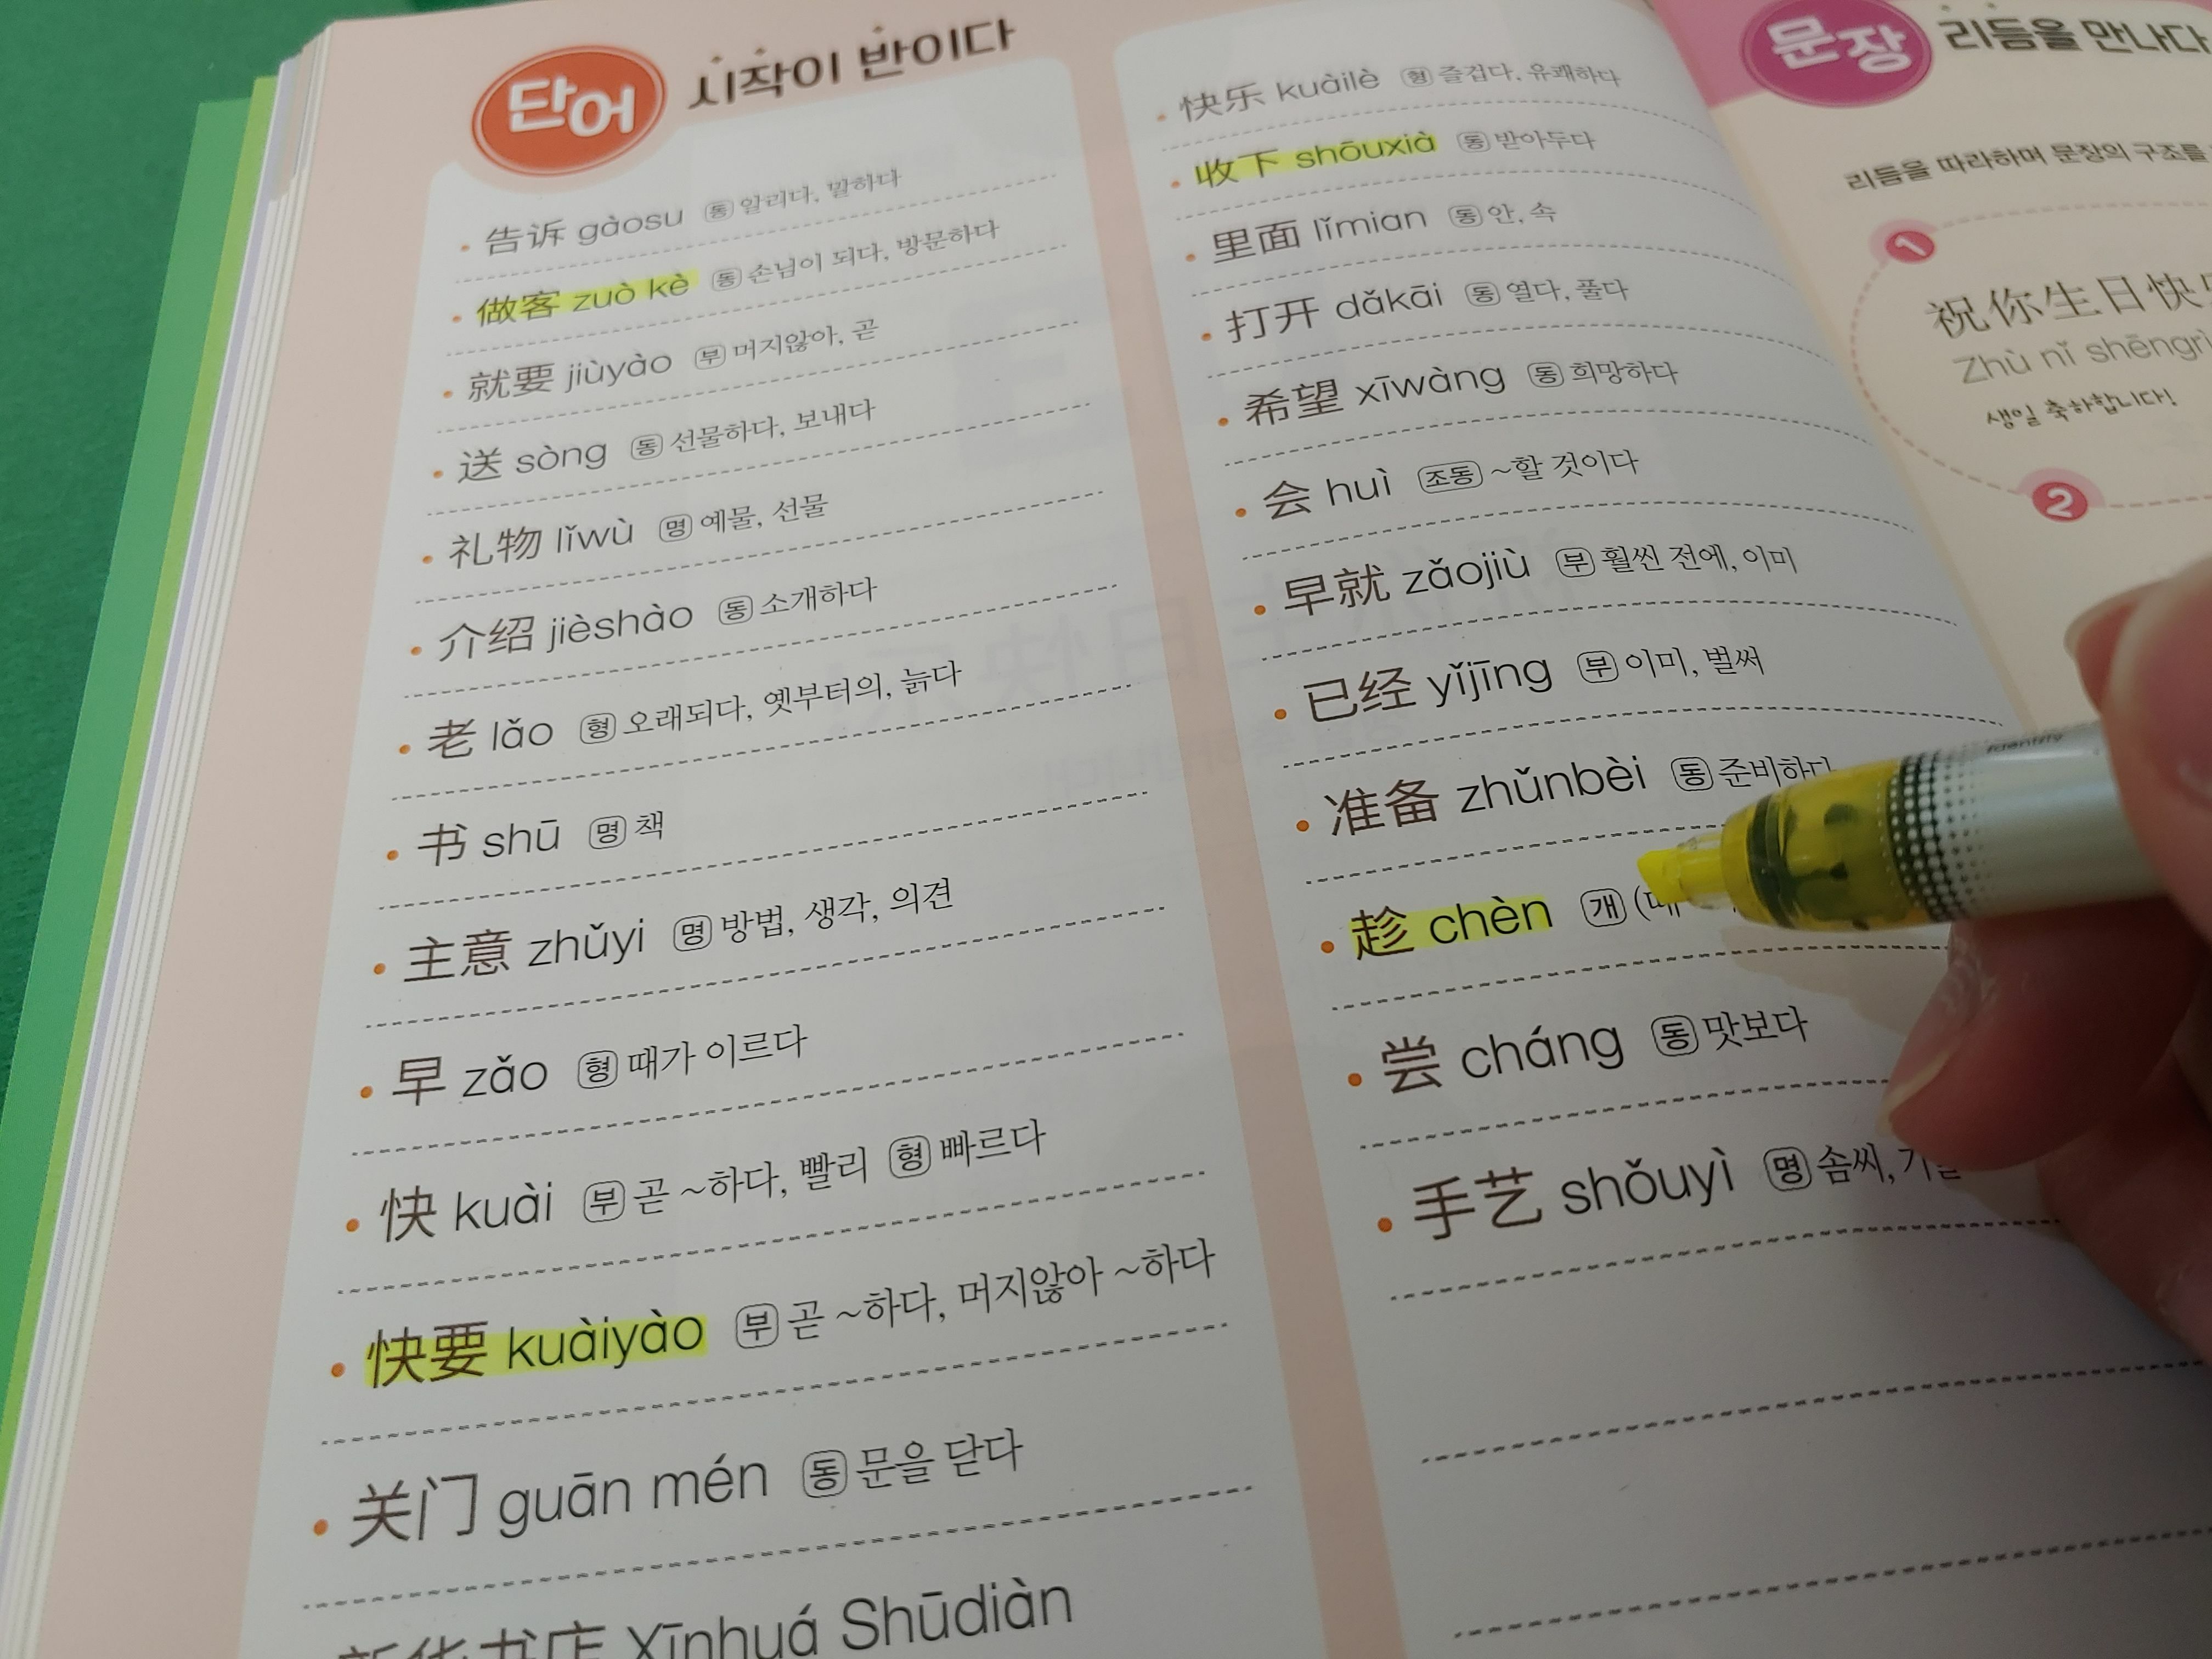 단어 시작이 반이다
告诉 gàosu 동 알리다, 말하다
做客 zuò kè 동 손님이 되다, 방문하다
就要 jiùyào 부 머지않아, 곧
送 sòng 동 선물하다, 보내다
礼物 lǐwù 명 예물, 선물
介绍 jièshào 동 소개하다
老 lǎo 형 오래되다, 옛부터의, 늙다
书 shū 명 책
主意 zhǔyi 명 방법, 생각, 의견
早 zǎo 형 때가 이르다
快 kuài 부 곧 ~하다, 빨리 형 빠르다
快要 kuàiyào 부 곧 ~하다, 머지않아 ~하다
关门 guān mén 동 문을 닫다
新华书店 Xīnhuá Shūdiàn
快乐 kuàilè 형 즐겁다, 유쾌하다
收下 shōuxià 동 받아두다
里面 lǐmian 동 안, 속
打开 dǎkāi 동 열다, 풀다
希望 xīwàng 동 희망하다
会 huì 조동 ~할 것이다
早就 zǎojiù 부 훨씬 전에, 이미
已经 yǐjīng 부 이미, 벌써
准备 zhǔnbèi 동 준비하다
趁 chèn 개
尝 cháng 동 맛보다
手艺 shǒuyì 명 솜씨,
문장 리듬을 만나다
리듬을 따라하며 문장의 구조를
1
祝你生日快乐
Zhù nǐ shēngrì
생일 축하합니다!
2